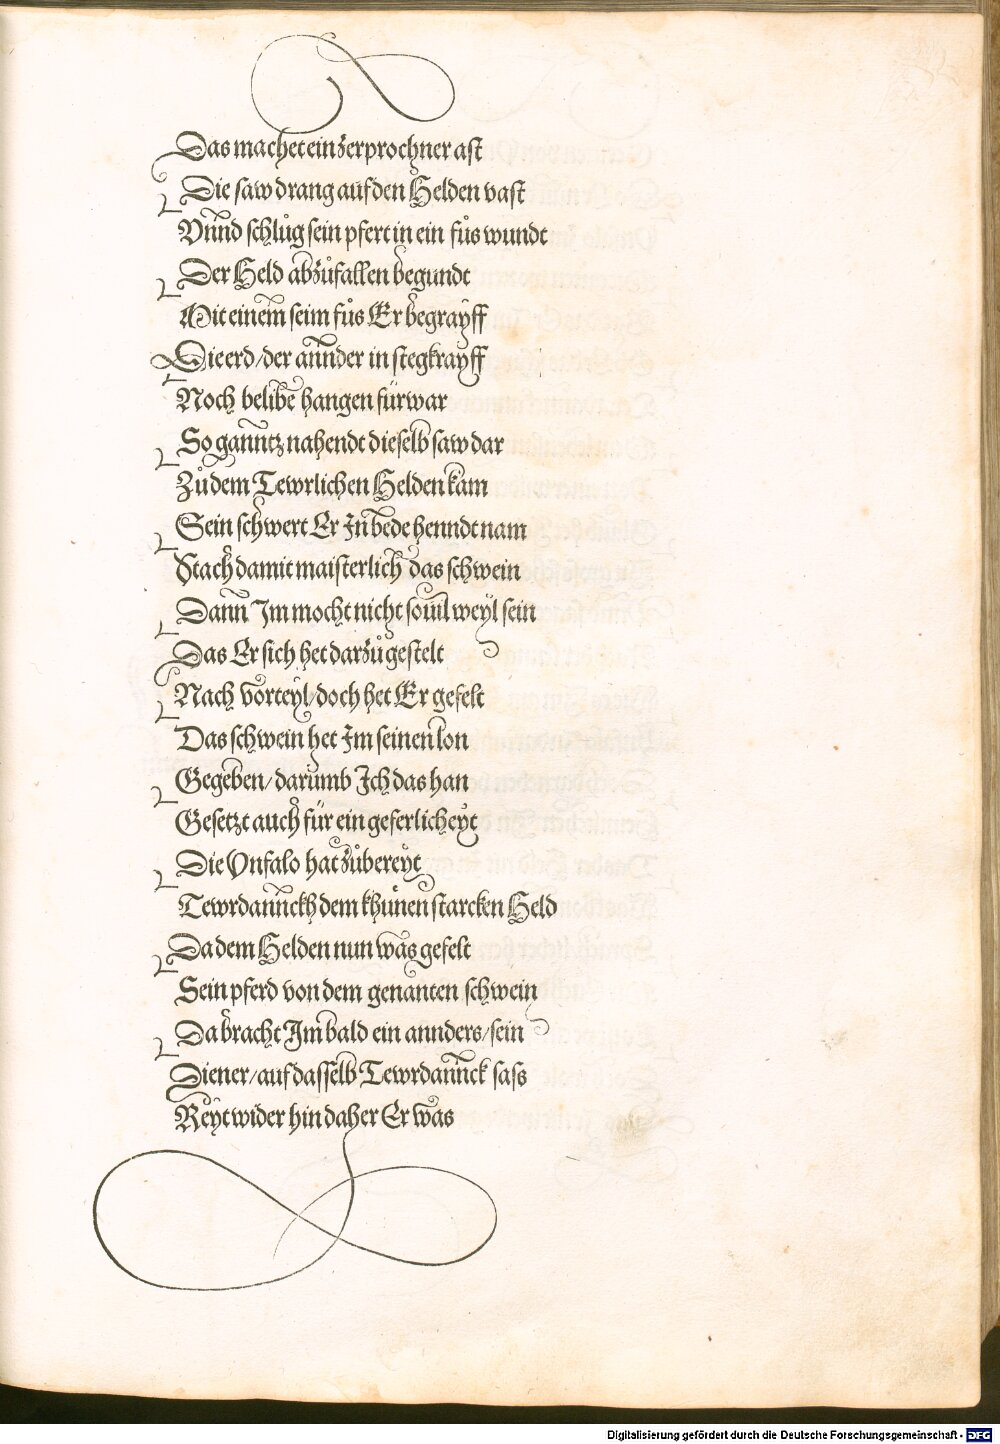 Das machet ein zerprochner ast
Die saw drang auf den Helden vast
Vnnd schlůg sein pfert in ein fůs wundt
Der Held abzůfallen begundt
Mit einem seim fůs Er begrayff
Die erd/ der annder in stegkrayff
Noch belibe hangen fürwar
So ganntz nahendt dieselb saw dar
Zů dem Tewrlichen Helden kam
Sein schwert Er In bede henndt nam
Stach damit maisterlich das schwein
Dann Im mocht nicht souil weyl sein
Das Er sich het darzů gestelt
Nach vorteyl/ doch het Er gefelt
Das schwein het Im seinen lon
Gegeben/ darumb Ich das han
Gesetzt auch für ein geferlicheyt
Die Vnfalo hat zůbereyt
Tewrdannckh dem khünen starcken Held
Da dem Helden nun was gefelt
Sein pferd von dem genanten schwein
Da bracht Im bald ein annders/ sein
Diener/ auf dasselb Tewrdannck sass
Reyt wider hin daher Er was
Digitalisierung gefördert durch die Deutsche Forschungsgemeinschaft - DFG